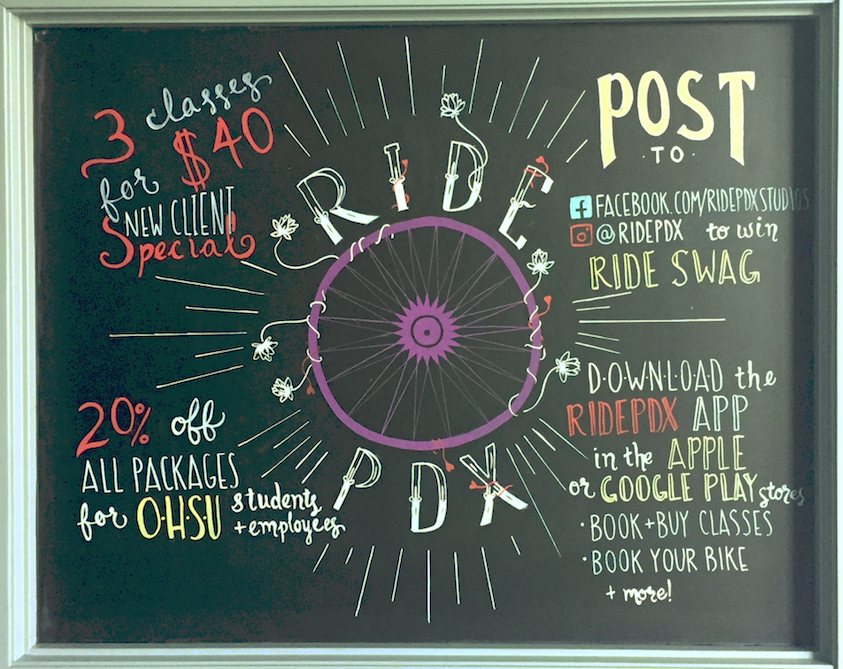 3 classes
for $40
NEW CLIENT
Special
RIDE
PDX
POST
·TO·
FACEBOOK.COM/RIDEPDXSTUDIOS
@RIDEPDX to win
RIDE SWAG
20% off
ALL PACKAGES
for O·H·S·U students
+employees
D·O·W·N·L·O·A·D the
RIDEPDX APP
in the APPLE
or GOOGLE PLAY stores
·BOOK+BUY CLASSES
·BOOK YOUR BIKE
+ more!